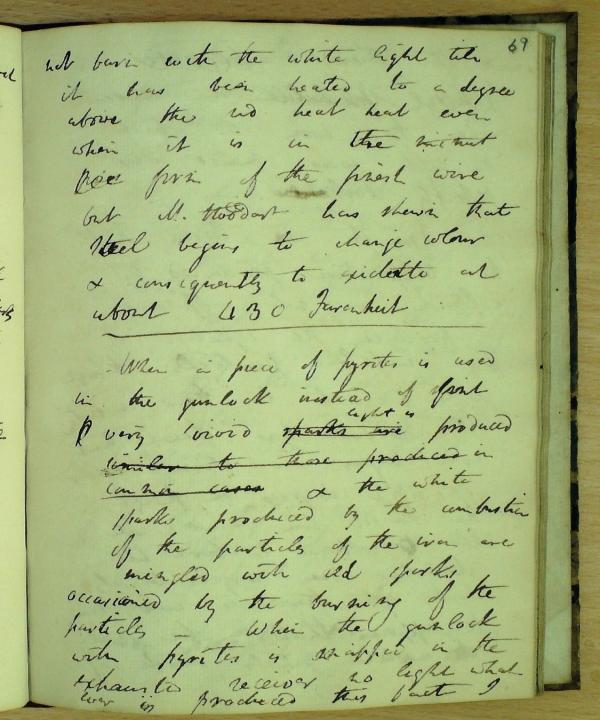 69
not burn with the white light till
it has been heated to a degree
above the red heat heat even
when it is in the minut
form of the finest wire
but M. Stoddart has shewn that
Steel begins to change colour
& consequently to oxidate at
about 430 Farenheit
- When a piece of pyrites is used
in the gunlock instead of flint
very vivid sparks are light is produced
similar to those produced in
common cases & the white
sparks produced by the combustion
of the particles of the iron are
mingled with red sparks
occasioned by the burning of the
particles - When the gunlock
with pyrites is snapped in the
exhausted receiver no light what
ever is produced this fact I